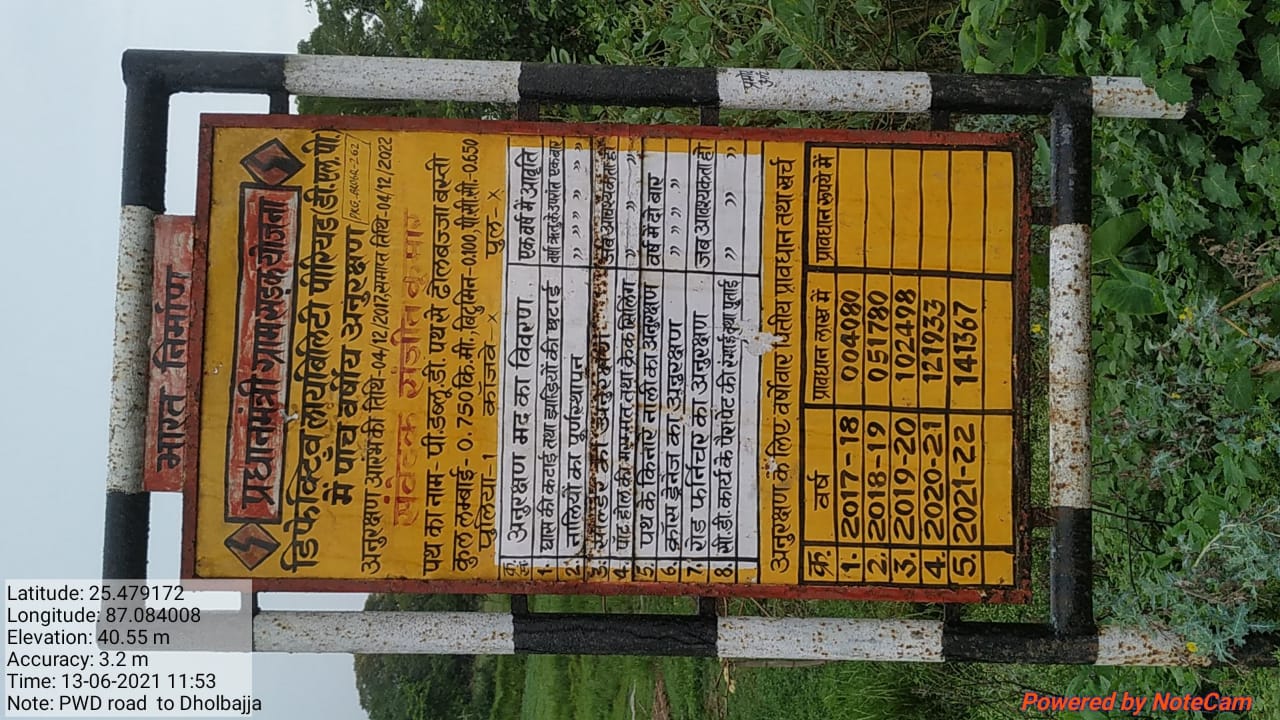 भारत निर्माण
प्रधानमंत्री ग्राम सड़क योजना
डिफेक्टिव लायबिलिटी पीरियड(डी.एल.पी)
में पाँच वर्षीय अनुरक्षण
अनुरक्षण आरम्भ की तिथि-04/12/2017, समाप्त तिथि-04/12/2022
संवेदक रंजीत कुमार
पथ का नाम- पी.डब्लू.डी. पथ से ढोलबज्जा बस्ती
कुल लम्बाई- 0.750 कि.मी. बिटुमिन-0.100, पी.सी.सी.-0.650
पुलिया-1 कॉजवे-x पुल-x
अनुरक्षण मद का विवरण एक वर्ष में आवृति
1. घास की कटाई तथा झाड़ियों की छटाई वर्षा ऋतु के उपरांत एक बार
2. नालियों का पूर्णस्थापन " " " "
3. सोल्डर का अनुरक्षण जब आवश्यकता हो
4. पॉट होल की मरम्मत तथा क्रेक सिलिंग " " "
5. पथ के किनारे नाली का अनुरक्षण वर्ष में दो बार
6. क्रॉस ड्रेनेज का अनुरक्षण " " " "
7. रोड फर्निचर का अनुरक्षण जब आवश्यकता हो
8. सी.डी कार्य के पैरापेट की रंगाई तथा पुताई " "
अनुरक्षण के लिए वर्षवार वितीय प्रावधान तथा खर्च
क्र. वर्ष प्रावधान लाख में प्रावधान रूपये में
1. 2017-18 004080
2. 2018-19 051780
3. 2019-20 102498
4. 2020-21 121933
5. 2021-22 141367
Latitude: 25.479172
Longitude: 87.084008
Elevation: 40.55 m
Accuracy: 3.2 m
Time: 13-06-2021 11:53
Note: PWD road to Dholbajja
Powered by NoteCam